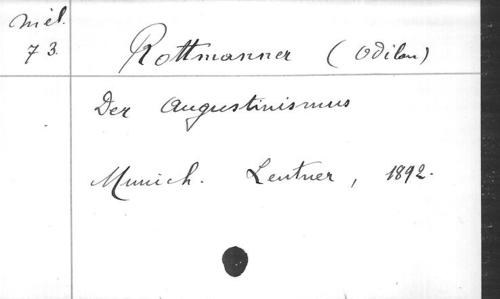 Mél.
73.
Rottmanner (Odilon)
Der Augustinismus
Munich. Lentner, 1892.